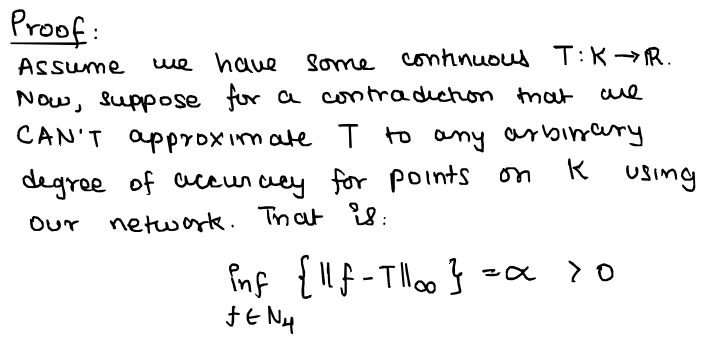 Proof:
Assume we have some continuous T: K → ℝ.
Now, suppose for a contradiction that we
CAN'T approximate T to any arbitrary
degree of accuracy for points on K using
our network. That is:
inf { ‖f - T‖∞ } = α > 0
f ∈ N₄